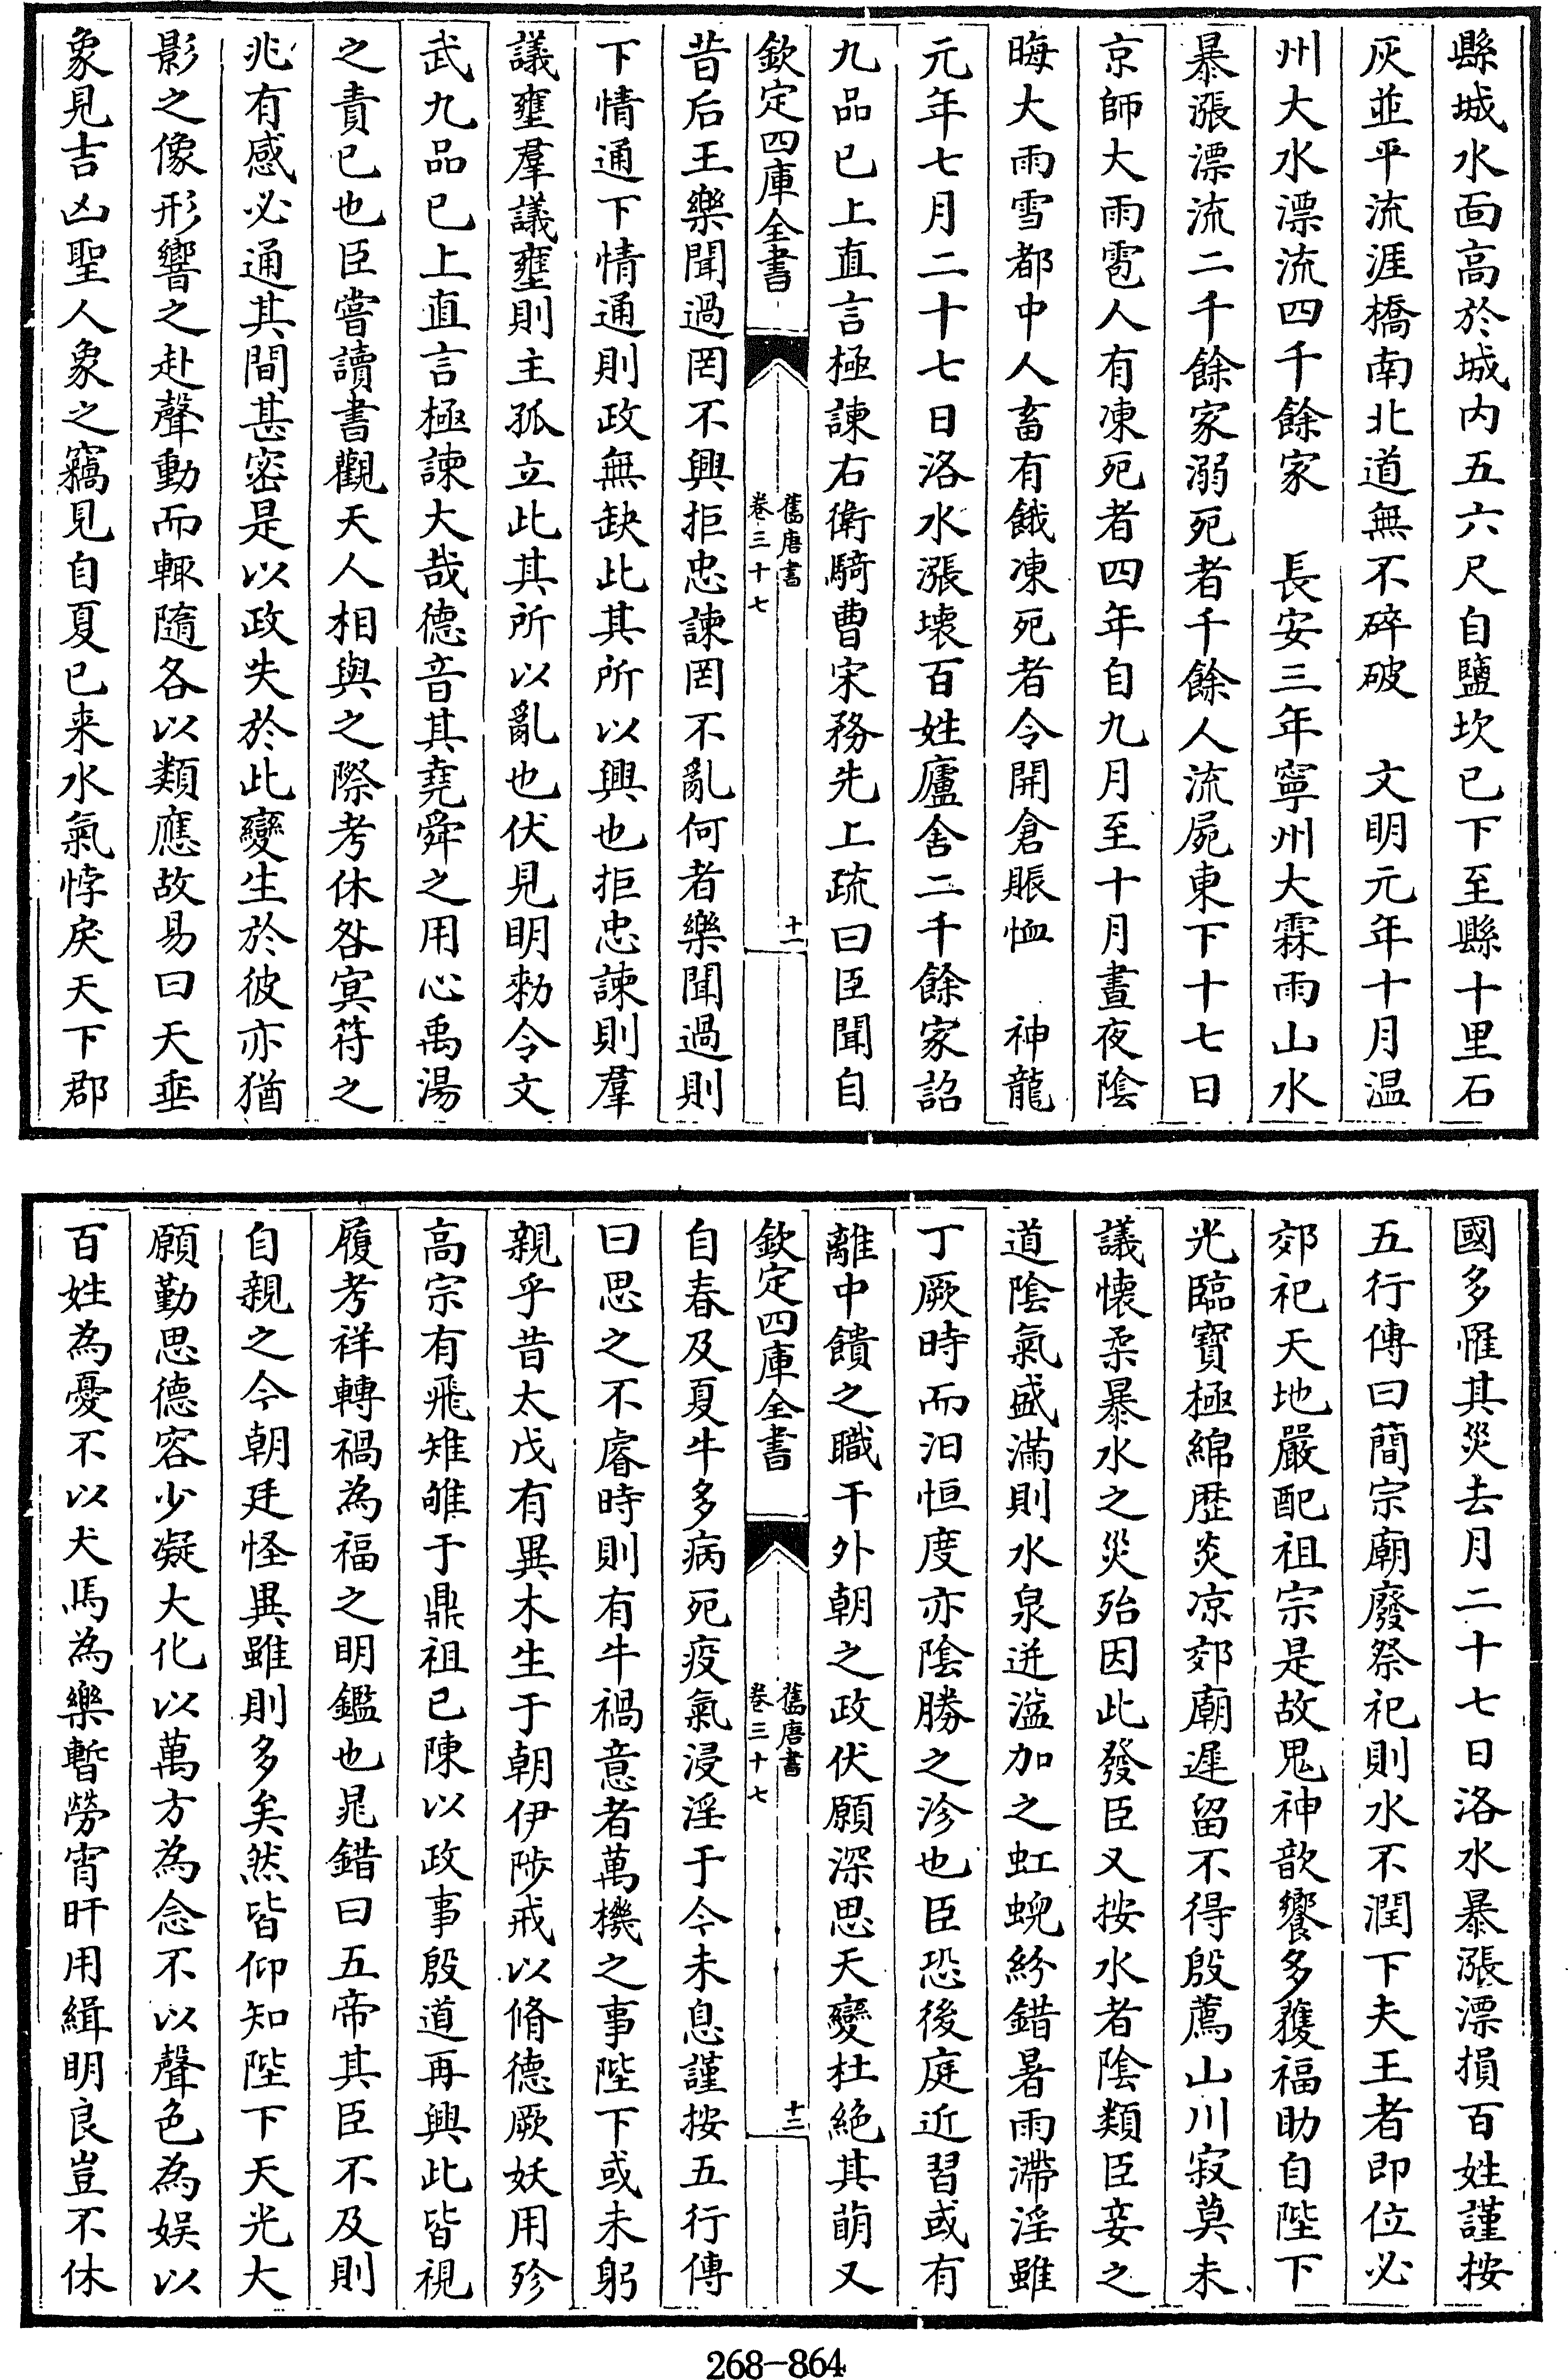 縣城水面高於城内五六尺自鹽坎已下至縣十里石
灰並平流涯橋南北道無不碎破　文明元年十月温
州大水漂流四千餘家　長安三年寧州大霖雨山水
暴漲漂流二千餘家溺死者千餘人流屍東下十七日
京師大雨雹人有凍死者四年自九月至十月晝夜陰
晦大雨雪都中人畜有餓凍死者令開倉賑恤　神龍
元年七月二十七日洛水漲壊百姓廬舍二千餘家詔
九品已上直言極諫右衛騎曹宋務先上疏曰臣聞自
欽定四庫全書
舊唐書
卷三十七
十一
昔后王樂聞過罔不興拒忠諫罔不亂何者樂聞過則
下情通下情通則政無缺此其所以興也拒忠諫則羣
議壅羣議壅則主孤立此其所以亂也伏見明勑令文
武九品已上直言極諫大哉德音其堯舜之用心禹湯
之責已也臣嘗讀書觀天人相與之際考休咎冥符之
兆有感必通其間甚密是以政失於此變生於彼亦猶
影之像形響之赴聲動而輙隨各以類應故易曰天垂
象見吉凶聖人象之竊見自夏已来水氣悖戾天下郡
國多罹其災去月二十七日洛水暴漲漂損百姓謹按
五行傳曰簡宗廟廢祭祀則水不潤下夫王者即位必
郊祀天地嚴配祖宗是故鬼神歆饗多獲福助自陛下
光臨寶極綿歴炎凉郊廟遲留不得殷薦山川寂莫未
議懷柔暴水之災殆因此發臣又按水者陰類臣妾之
道陰氣盛滿則水泉迸溢加之虹蜺紛錯暑雨滯淫雖
丁厥時而汨恒度亦陰勝之沴也臣恐後庭近習或有
離中饋之職干外朝之政伏願深思天變杜絶其萌又
欽定四庫全書
舊唐書
卷三十七
十二
自春及夏牛多病死疫氣浸淫于今未息謹按五行傳
曰思之不睿時則有牛禍意者萬機之事陛下或未躬
親乎昔太戊有異木生于朝伊陟戒以脩德厥妖用殄
高宗有飛雉雊于鼎祖已陳以政事殷道再興此皆視
履考祥轉禍為福之明鑑也鼂錯曰五帝其臣不及則
自親之今朝廷怪異雖則多矣然皆仰知陛下天光大
願勤思德容少凝大化以萬方為念不以聲色為娯以
百姓為憂不以犬馬為樂暫勞宵旰用緝明良豈不休
268-864